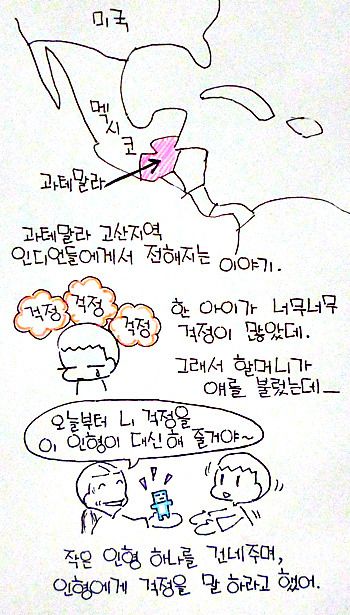 미국
멕시코
과테말라
과테말라 고산지역
인디언들에게서 전해지는 이야기.
걱정 걱정 걱정
한 아이가 너무너무
걱정이 많았데.
그래서 할머니가
얘를 불렀는데ㅡ
오늘부터 니 걱정을
이 인형이 대신해 줄거야~
작은 인형 하나를 건네주며,
인형에게 걱정을 말 하라고 했어.